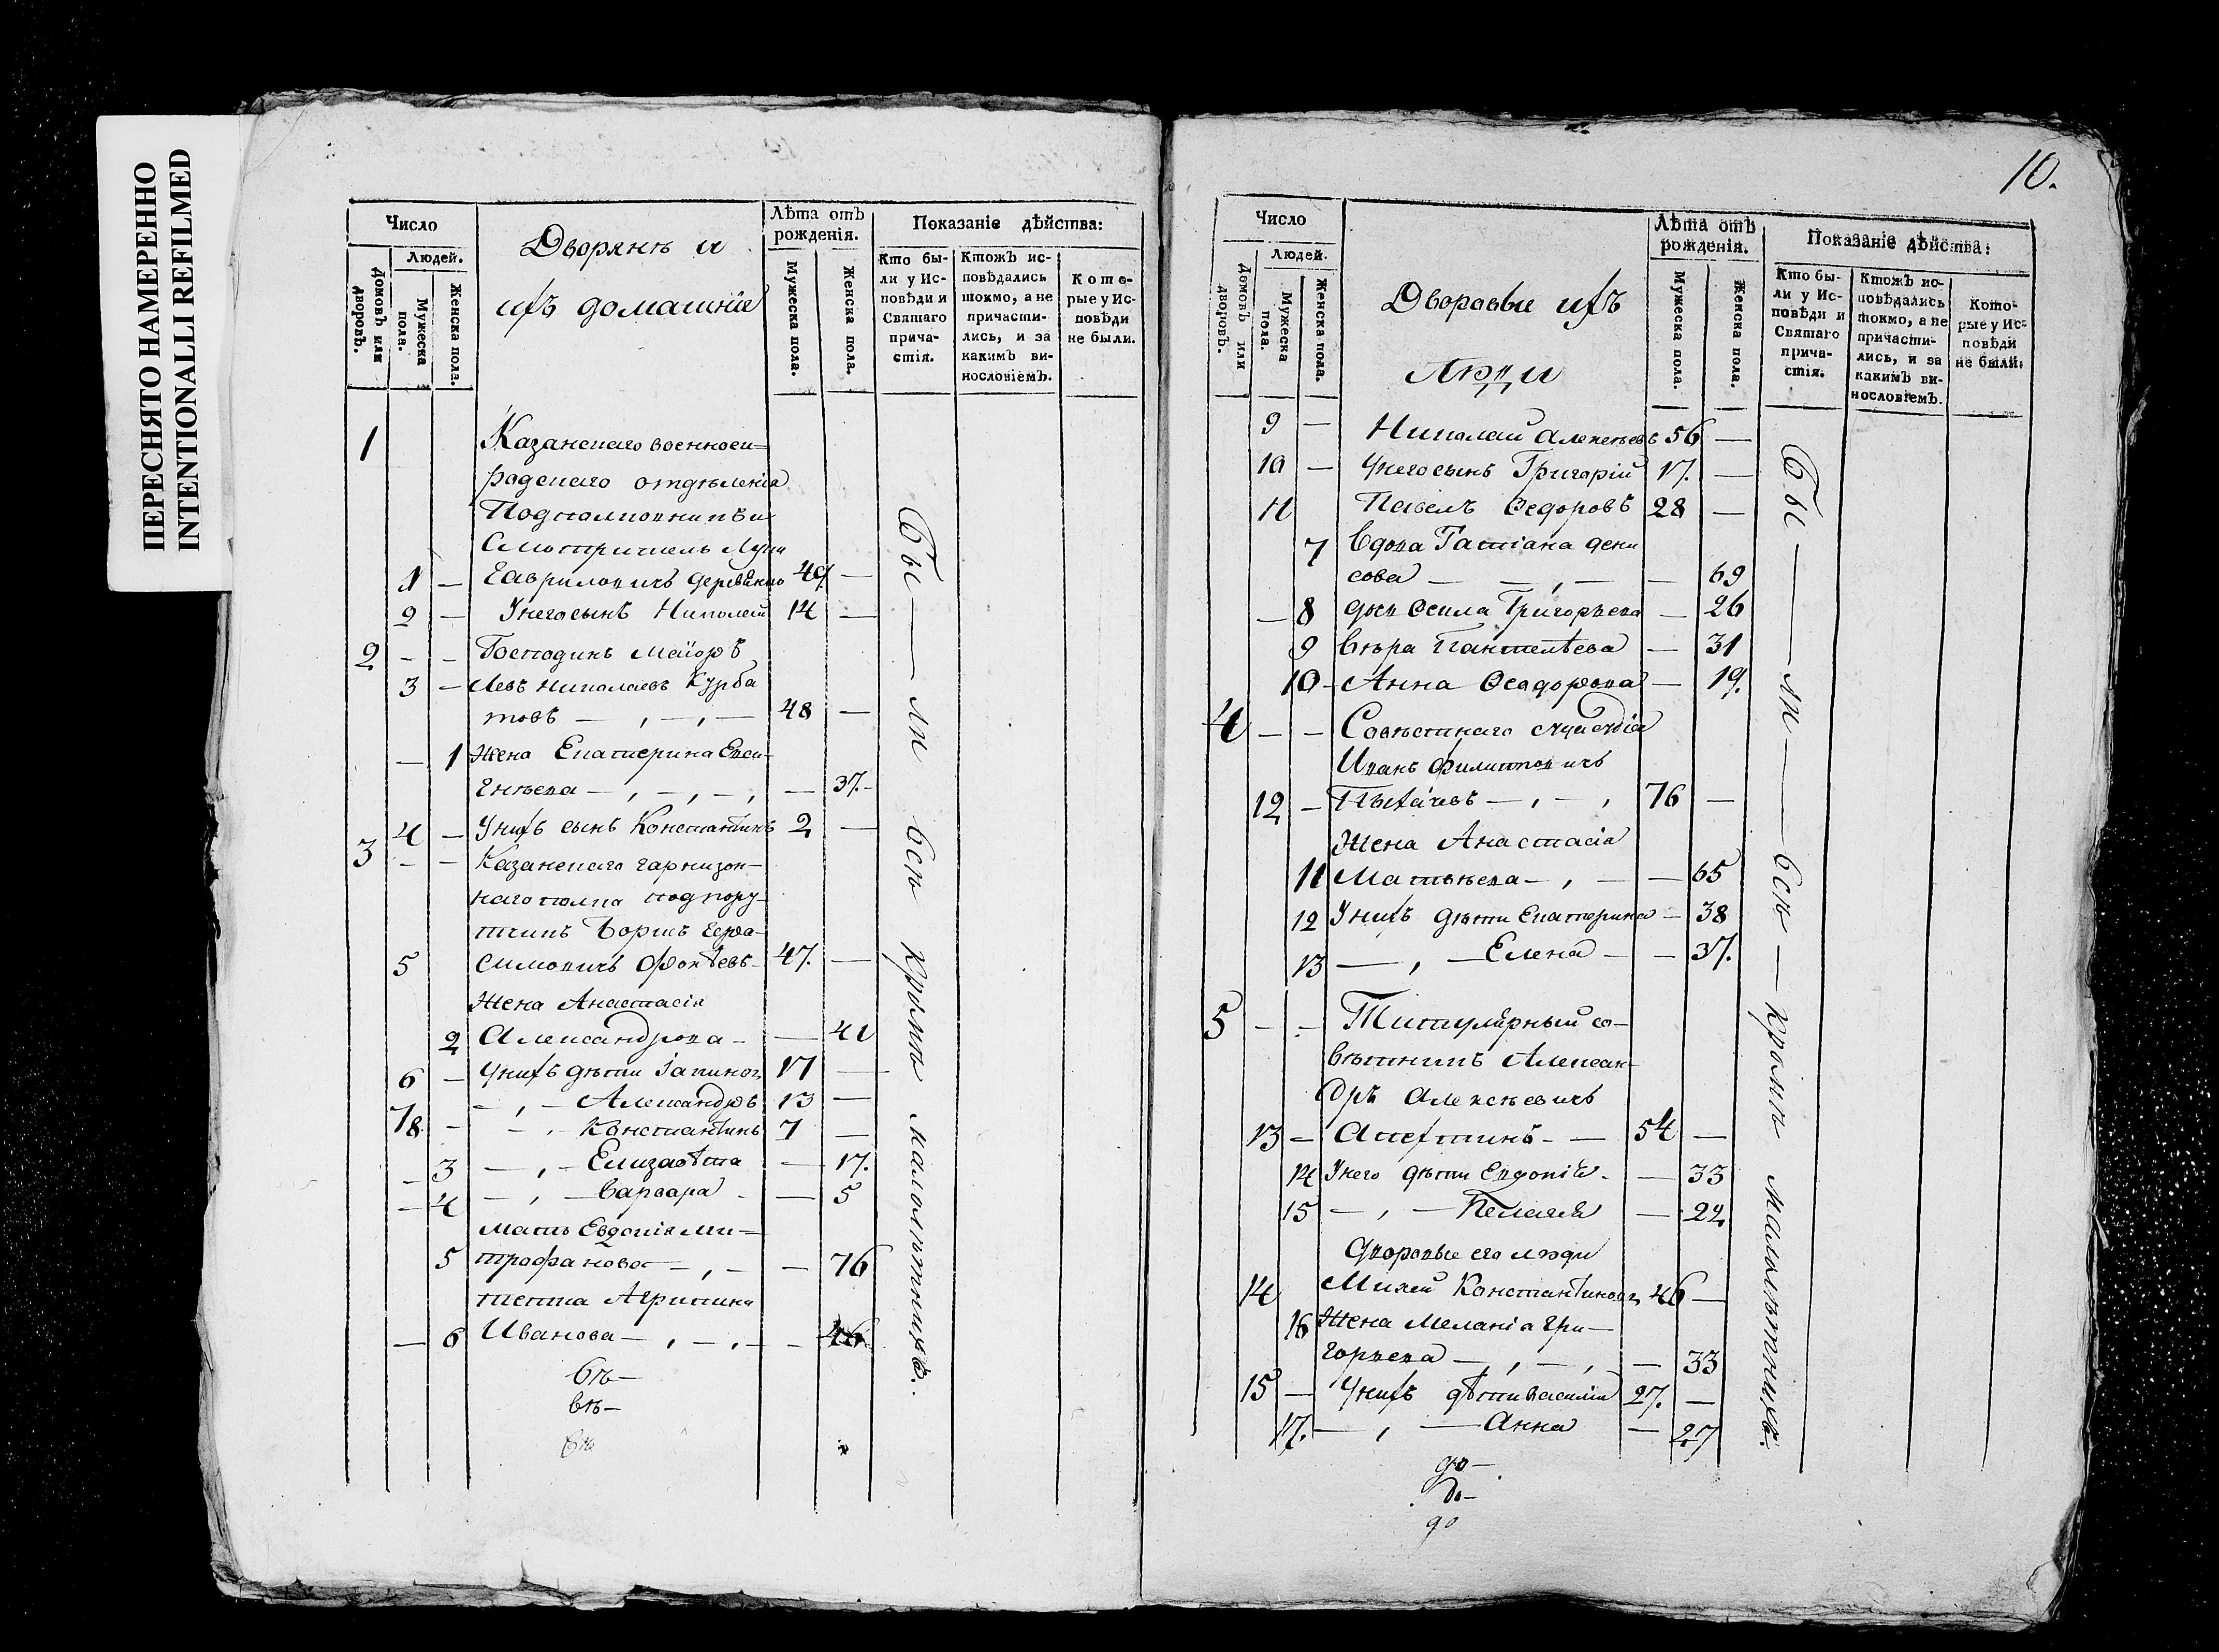 ПЕРЕСНЯТО НАМЕРЕННО
INTENTIONALLI REFILMED
Число
Людей.
Домовъ или дворовъ.
Мужеска пола.
Женска пола.
Дворянъ и
ихъ домашнiя
Лѣта отъ рожденiя.
Мужеска пола.
Женска пола.
Показанiе дѣйства:
Кто бы-
ли у Ис-
повѣди и
Святаго
прича-
стiя.
Ктожъ ис-
повѣдались
токмо, а не
причасти-
лись, и за
какимъ ви-
нословiемъ.
Кото-
рые у Ис-
повѣди
не были.
1 Казанскаго военноси-
родскаго отдѣленiя
Подполковникъ и
Смотритель
1 — Гавриловичъ 49 —
2 — У него сынъ Николай 14 —
2 - - Господинъ Маiоръ
3 — Левъ Николаевъ Курба
товъ — , — , — 48 —
— 1 Жена Екатерина Евси-
гнѣева — , — , — , — 37. -
4 — У нихъ сынъ Константинъ 2 —
3 - - Казанскаго гарнизон-
наго полка подпору-
тчикъ Борисъ Гера-
5 симовичъ Фокѣевъ - 47. —
Жена Анастасiя
2 Александрова - — 41
6 — У нихъ дѣти 17 —
7 - , - Александръ 13 —
8. - - , - Константинъ 7 —
- 3 — , - Елизавѣта — 17.
- 4 — , — Варвара - — 5
Мать Евдокiя Ми-
5 трофанова — , - — 76
тетка Агрипина
— 6 Иванова — , — , — - 46
въ —
въ —
въ
Бы — ли всѣ кромѣ малолѣтнихъ.
10.
Число
Людей.
Домовъ или дворовъ.
Мужеска пола.
Женска пола.
Дворовыи ихъ
Люди
Лѣта отъ рожденiя.
Мужеска пола.
Женска пола.
Показанiе дѣйства:
Кто бы-
ли у Ис-
повѣди и
Святаго
прича-
стiя.
Ктожъ ис-
повѣдались
токмо, а не
причасти-
лись, и за
какимъ ви-
нословiемъ.
Кото-
рые у Ис-
повѣди
не были.
9 — Николай Алексѣевъ 56 —
10 — У него сынъ Григорiй 17. —
11 Павелъ Федоровъ 28 —
7 Вдова Татiана Дени
сова — — , — — 69
— 8 Григорьева — 26
9 Вѣра Пантелѣева — 31
10 - Анна Феодорова — 19.
4 — — Совѣстнаго
Иванъ Филиповичъ
12 — Пыхачевъ — , — , 76 —
Жена Анастасiя
11 Матвѣева — , — — 65
12 У нихъ дѣти Екатерина — 38
13 — , — Елена — — 37.
5 — - Титулярный со-
вѣтникъ Алексан-
дръ Алексѣевичъ
13 — Апехтинъ - — 54 —
14 У него дѣти Евдокiя - — 33
15 — , — Пелагiя — 22
Дворовые его люди
14 Михей Константиновъ 46 —
16 Жена Меланiя Гри-
горьева — , — , — 33
15 — У нихъ дѣти Василiй 27. —
17. — , — Анна — 27
до —
до —
до
Бы — ли — всѣ — кромѣ малолѣтнихъ.